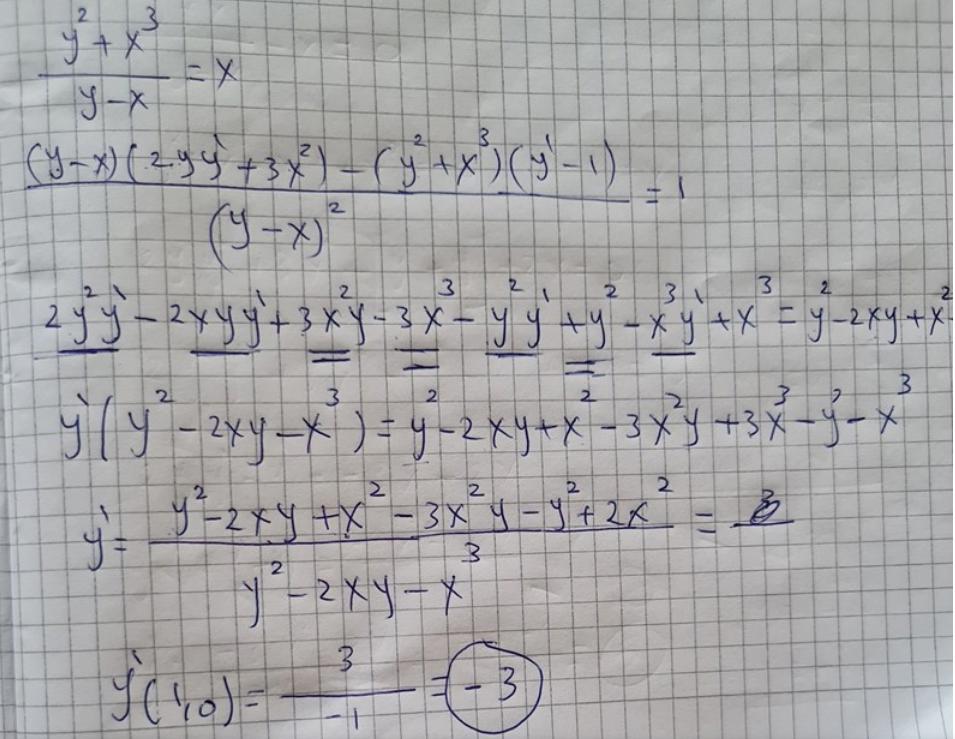 (y² + x³)/(y - x) = x
((y-x)(2yy' + 3x²) - (y² + x³)(y' - 1))/(y-x)² = 1
2y²y' - 2xyy' + 3x²y - 3x³ - y²y' + y² - x³y' + x³ = y² - 2xy + x²
y'(y² - 2xy - x³) = y² - 2xy + x² - 3x²y + 3x³ - y² - x³
y' = (y² - 2xy + x² - 3x²y - y² + 2x²)/(y² - 2xy - x³) =
y'(1,0) = 3/-1 = -3